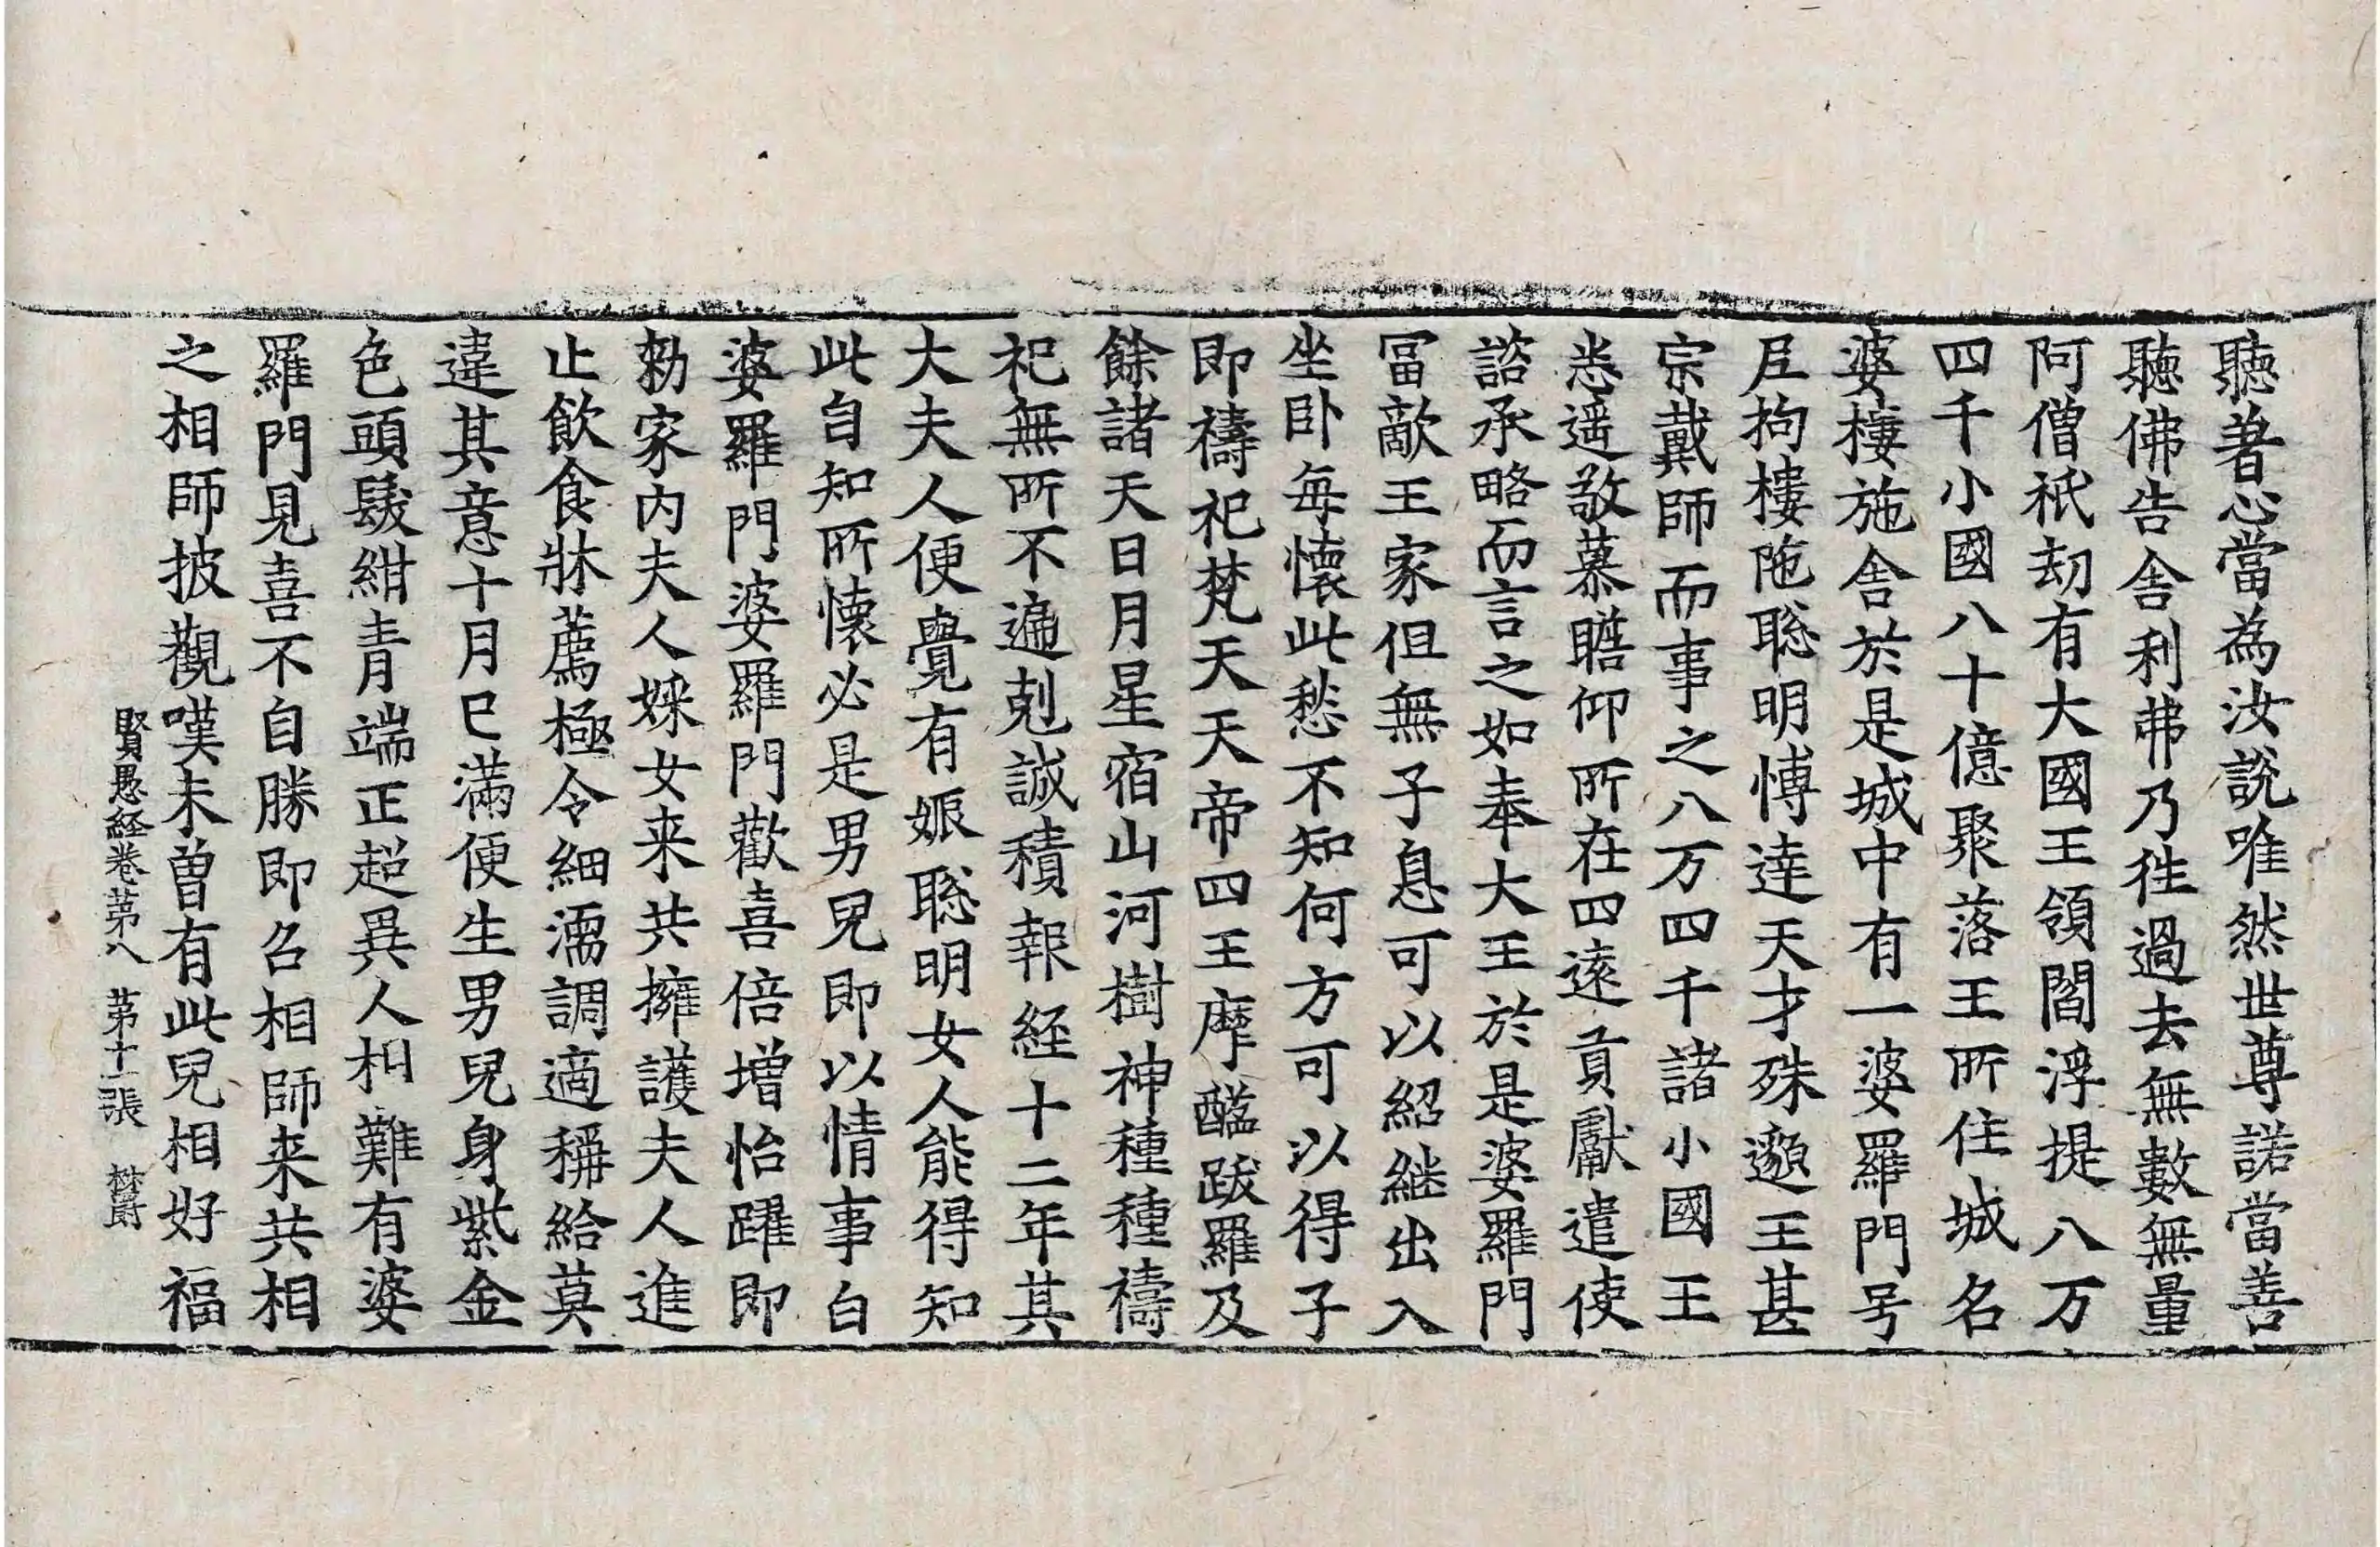 聽著心當為汝說唯然世尊諾當善
聽佛告舍利弗乃往過去無數無量
阿僧祇劫有大國王領閻浮提八万
四千小國八十億聚落王所住城名
婆樓施舍於是城中有一婆羅門号
尼拘樓陁聡明博達天才殊邈王甚
宗戴師而事之八万四千諸小國王
悉遥敬慕瞻仰所在四遠貢獻遣使
諮承略而言之如奉大王於是婆羅門
冨敵王家但無子息可以紹継出入
坐卧每懷此愁不知何方可以得子
即禱祀梵天天帝四王摩醯跋羅及
餘諸天日月星宿山河樹神種種禱
祀無所不遍剋誠積報経十二年其
大夫人便覺有娠聡明女人能得知
此自知所懷必是男兒即以情事白
婆羅門婆羅門歡喜倍增怡躍即
勑家内夫人婇女来共擁護夫人進
止飲食牀薦極令細濡調適稱給莫
違其意十月已滿便生男兒身紫金
色頭髮紺青端正超異人相難有婆
羅門見喜不自勝即召相師来共相
之相師披觀嘆未曽有此兒相好福
賢愚経卷苐八 苐十一張